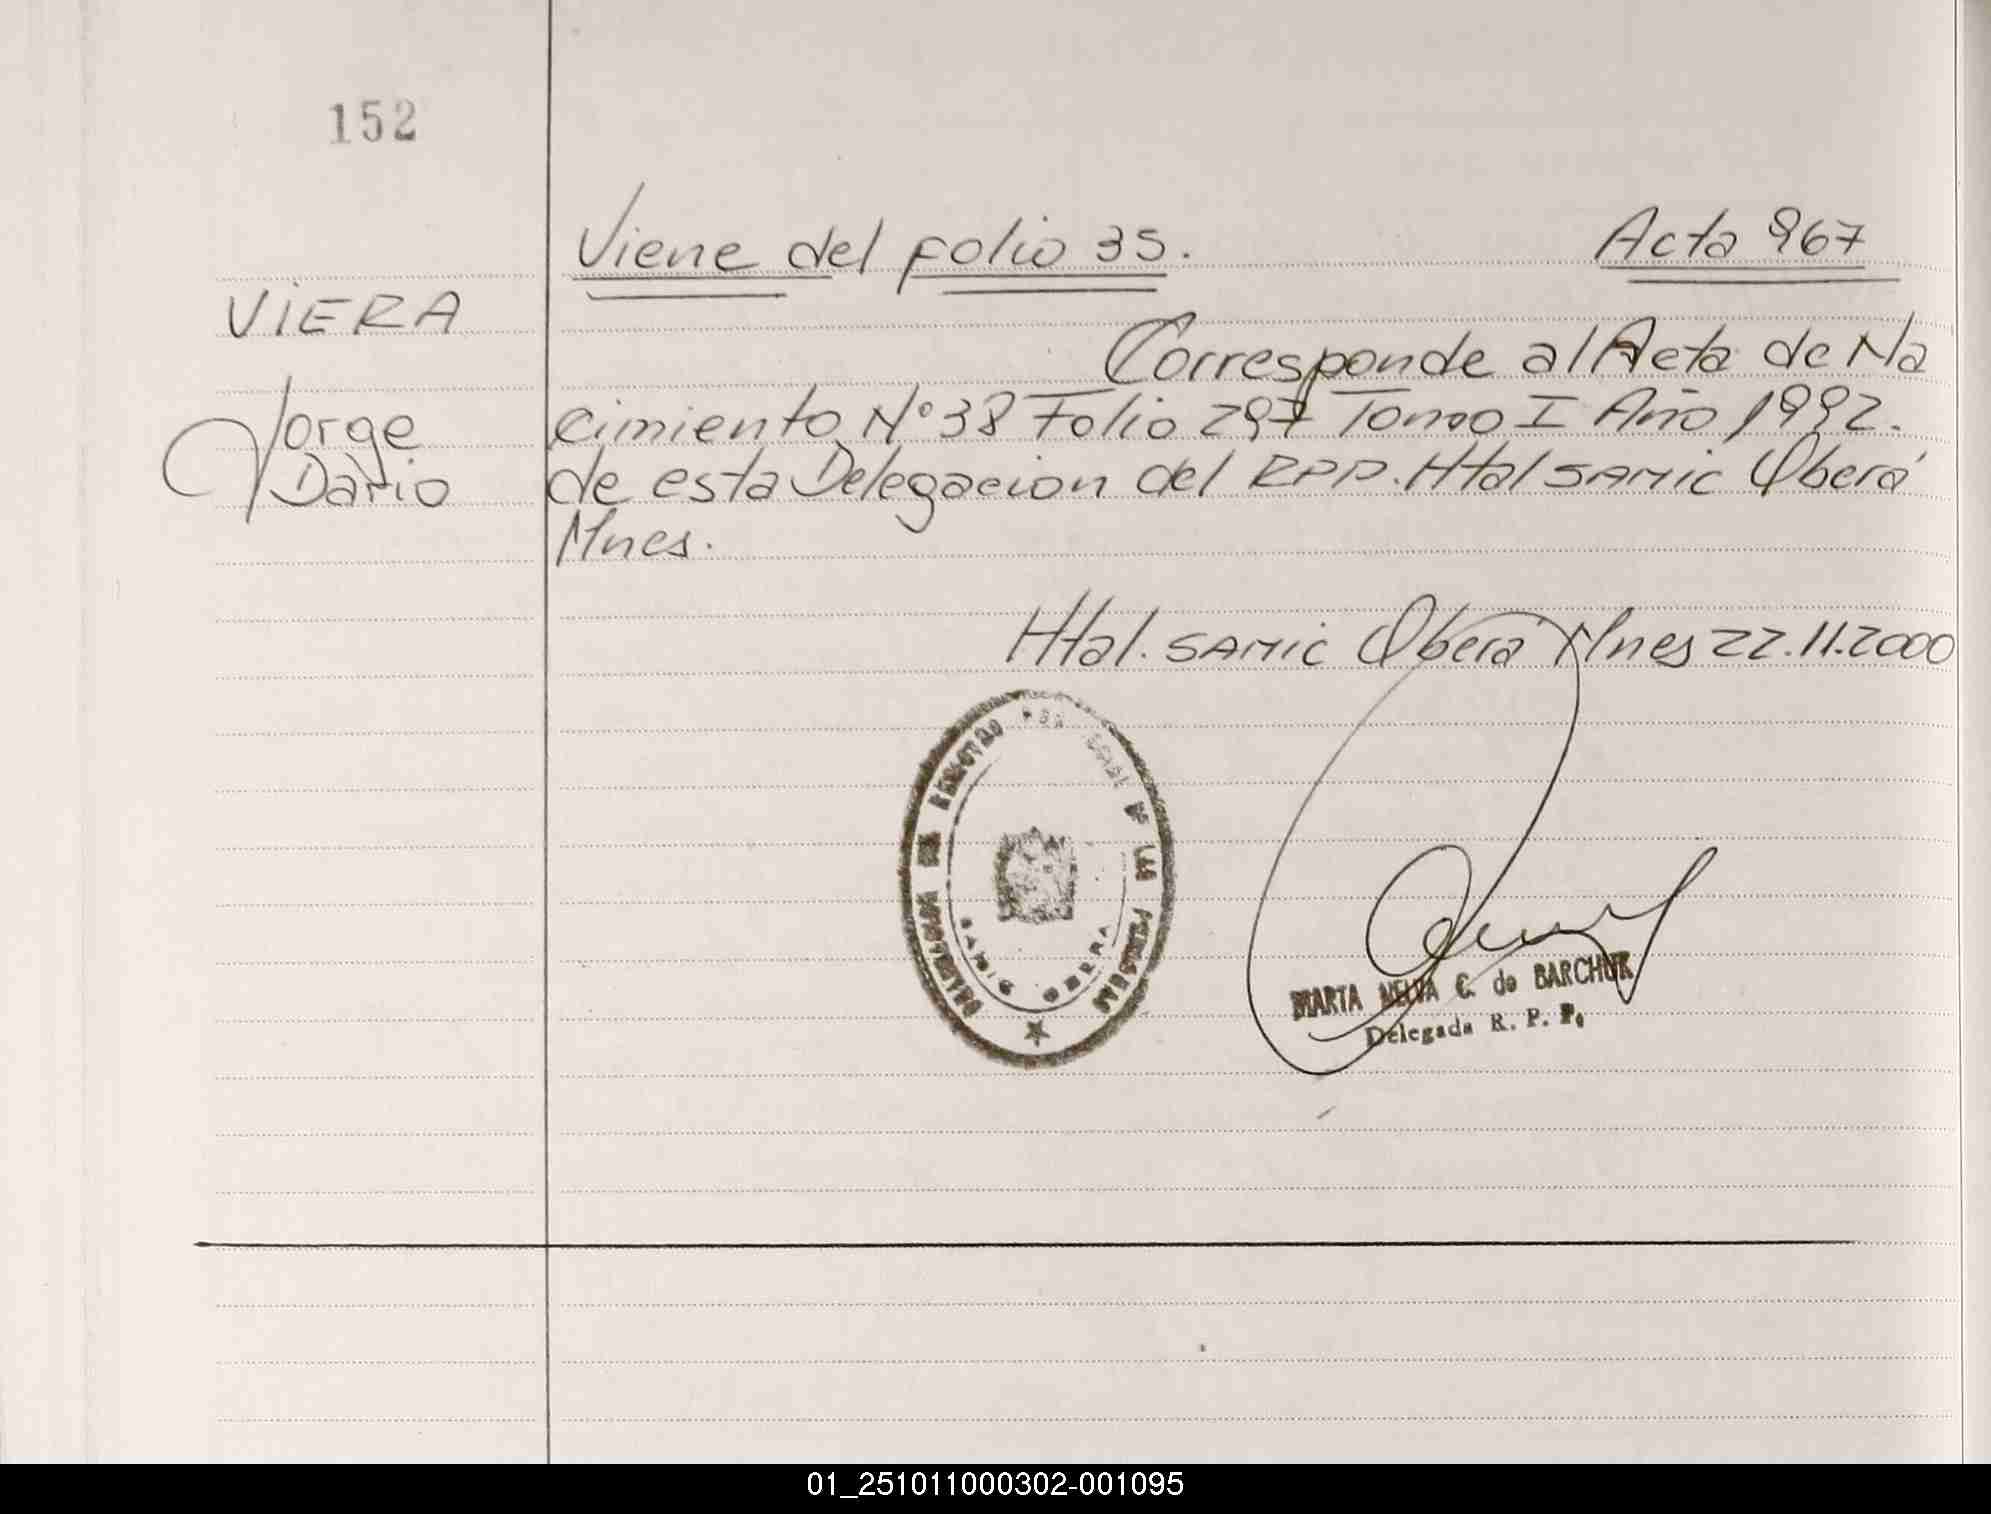 152
Viene del folio 35.
Acta 967
VIERA
Jorge
Dario
Corresponde al Acta de Na
cimiento N° 38 Folio 297 Tomo I Año 1992.
de esta Delegacion del RPP. Htal SAMIC Oberá
Mnes.
Htal. SAMIC Oberá Mnes 22.11.2000
DELEGACION DE REGISTRO DE LAS PERSONAS
SAMIC OBERA
MARTA NELVA C. de BARCHUK
Delegada R. P. P.
01_251011000302-001095